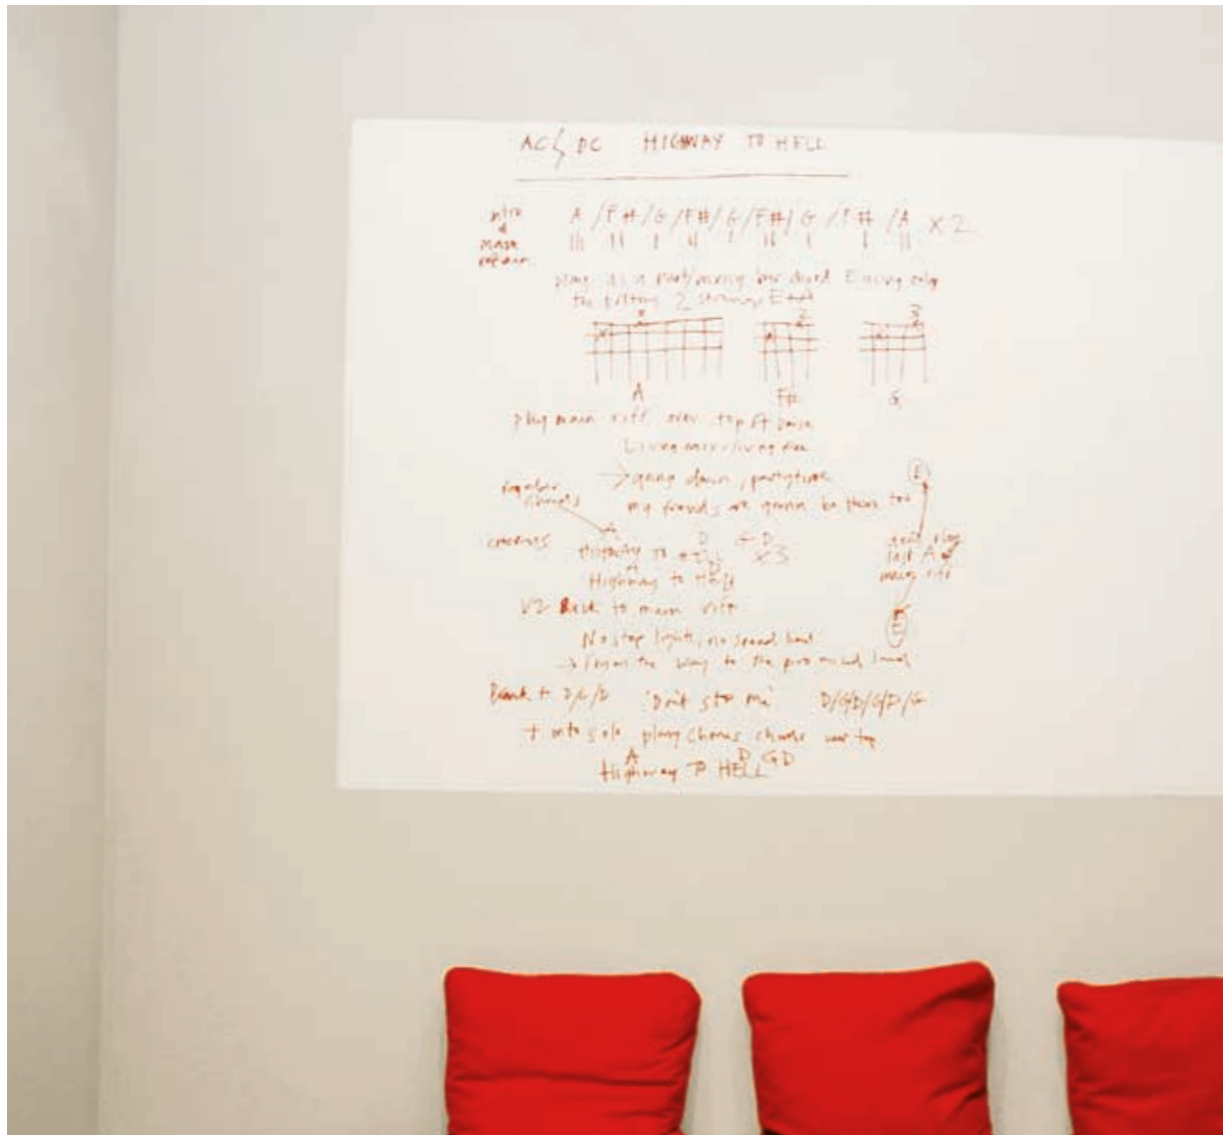 AC⚡DC HIGHWAY TO HELL
intro & main
A / F# / G / F# / G / F# / G / F# / A x2
play as a bar chord E using only
the bottom 2 strings E+A
2 3
A F# G
play main riff over top of
Living easy/living free
→ going down, partytime
my friends are gonna be there too
E
regular chords
chorus
A D G D
Highway to HELL x3
A D
Highway to Hell
play
last A of
main riff
E
V2 Back to main riff
No stop lights, no speed limit
→ the way to the promised land
Break to D/G/D 'Don't stop me' D/G/D/G/D/G
+ onto solo play chorus chords over top
A D G D
Highway TO HELL